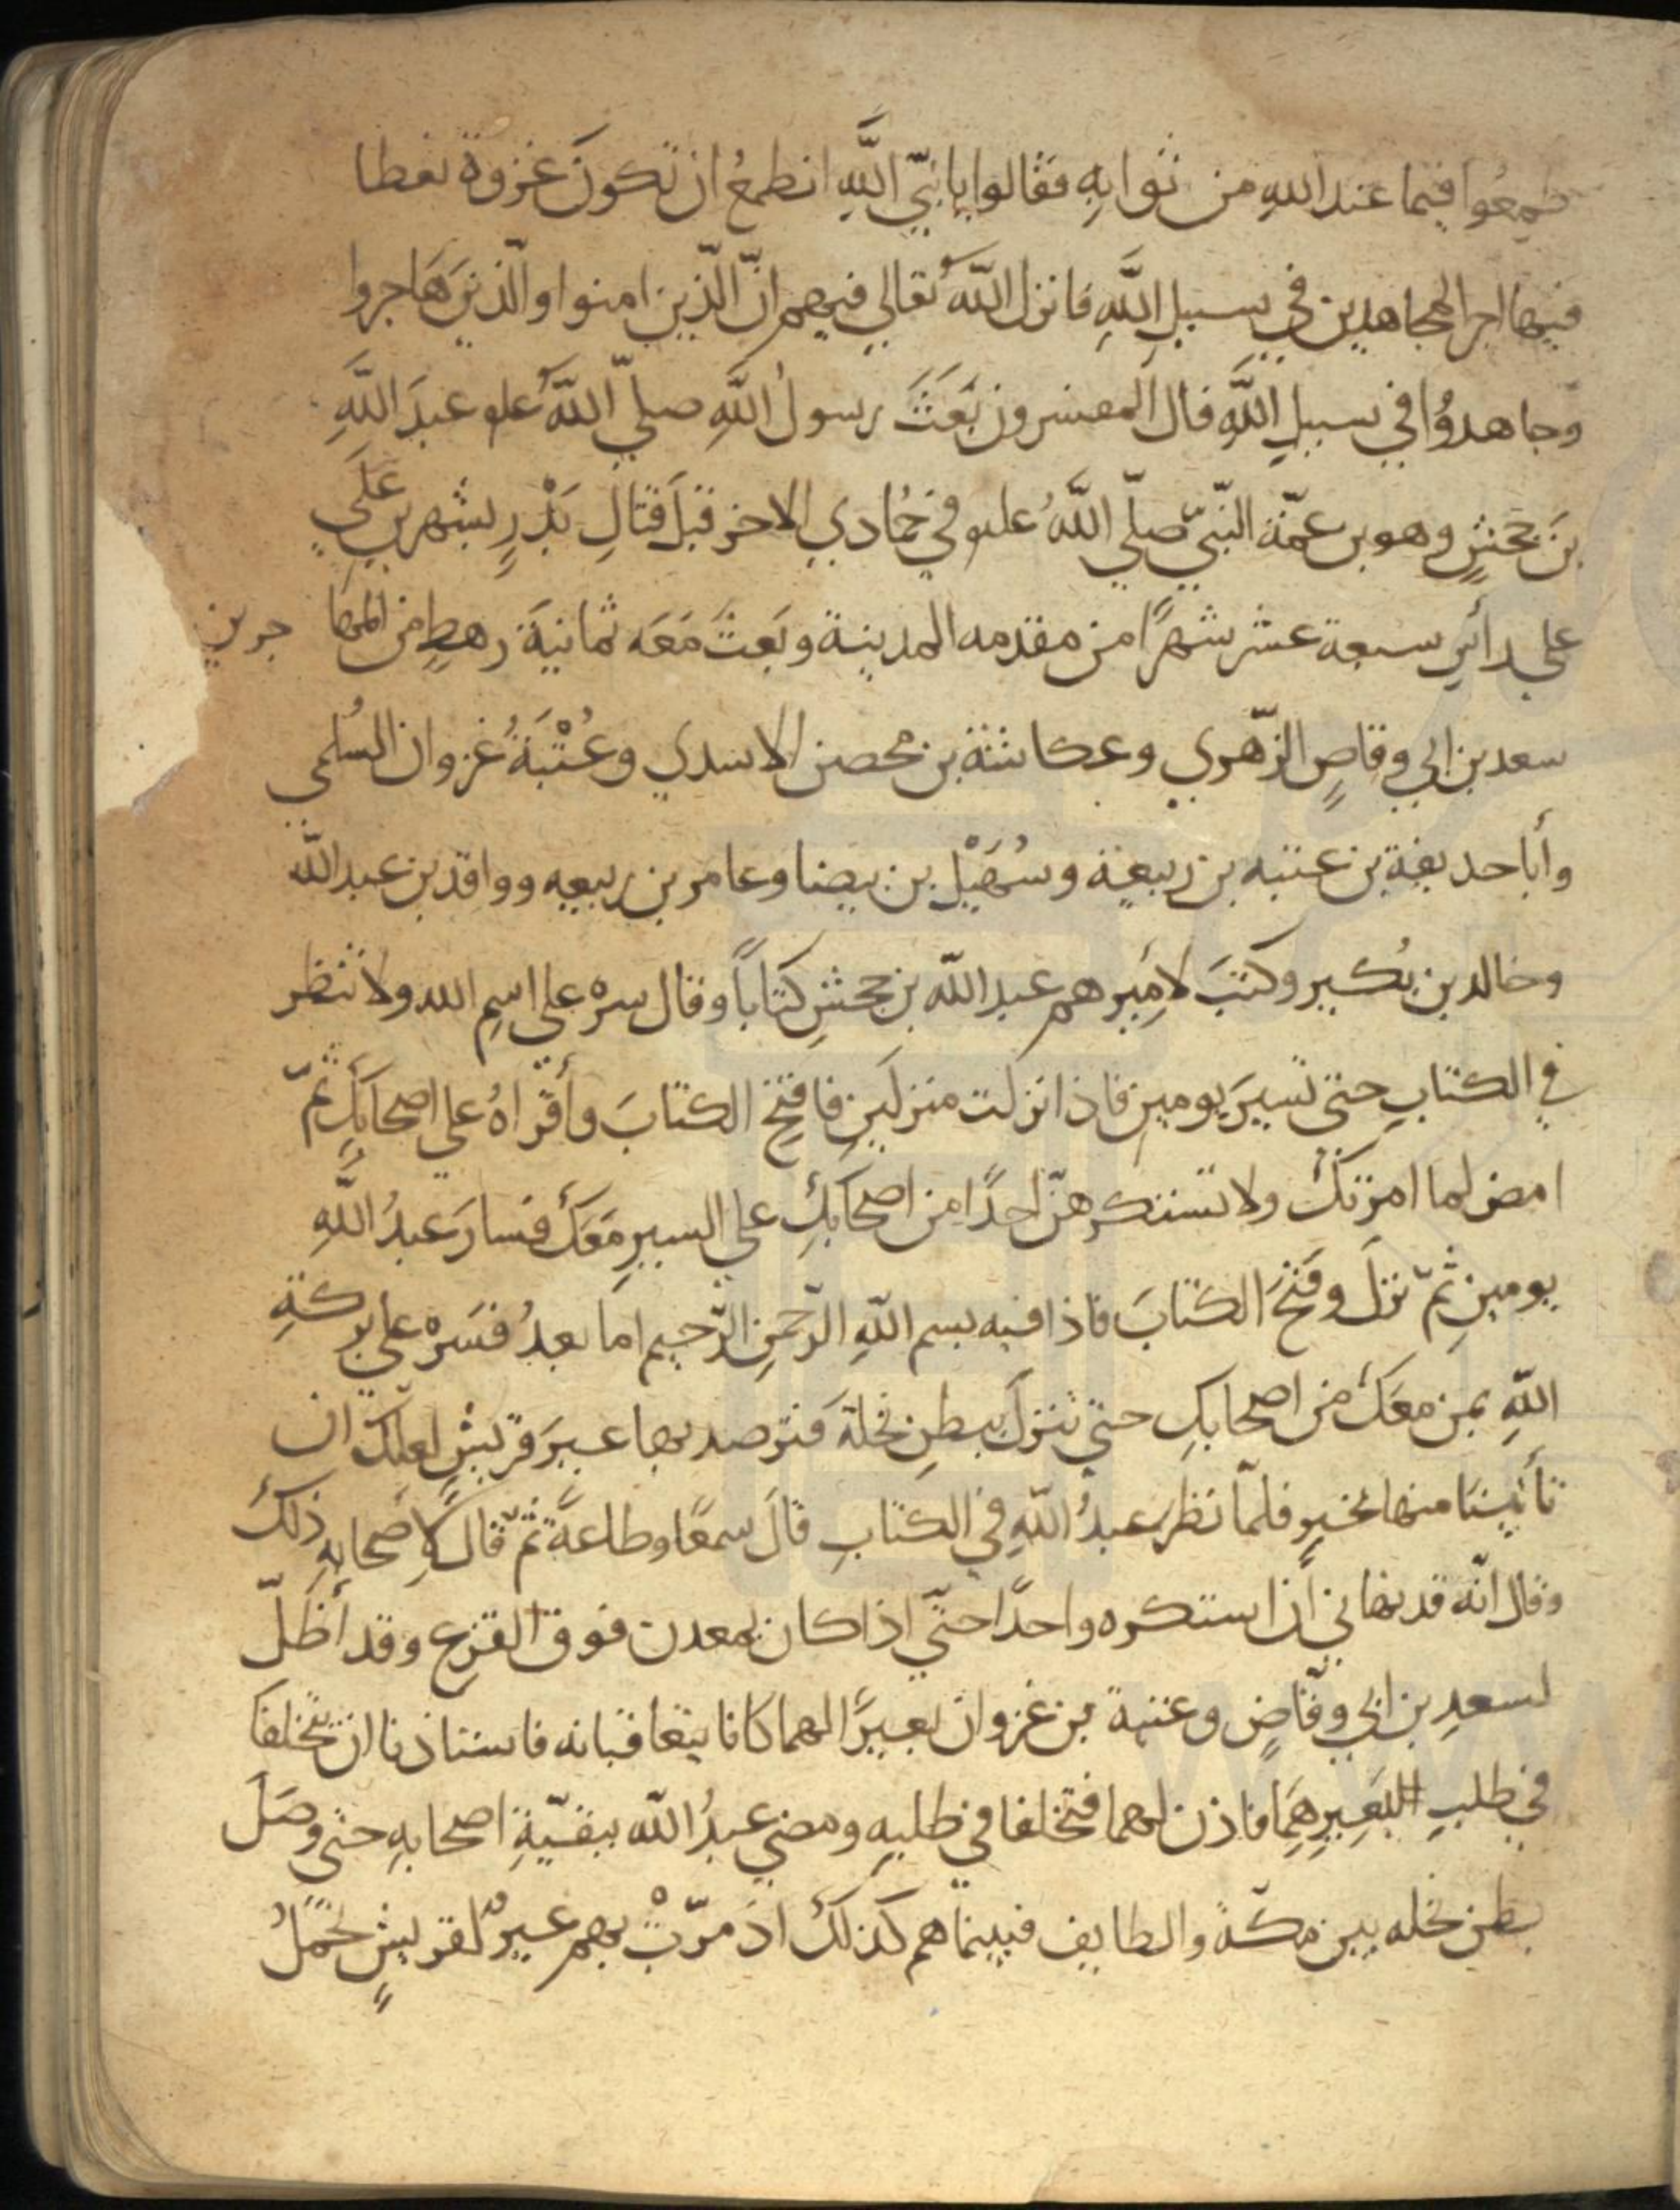 طمعُوا فيما عند اللهِ من ثوابِهِ فقالوا يا نبيّ اللَّهِ انطمعُ ان تكونَ غزوة نعطا
فيها اجر المجاهدين في سبيلِ اللَّهِ فانزل اللَّهُ تعالي فيهم انّ الّذين امنوا والّذينَ هَاجروا
وجاهدوُا في سبيلِ اللَّهِ قال المفسرون بَعَثَ رسولُ اللَّهِ صلّي اللَّهُ علو عبدَ اللَّهِ
بنَ جحَشٍ وهو بن عمّة النّبيّ صلّي اللَّهُ علىو في جُمادي الاخر قبلَ قتالِ بَدْرٍ بشهرين عَلَي
علي رأسِ سبعة عشر شهرًا من مقدمه المدينة وبَعثَ مَعَه ثمانيَةَ رهطٍ من المها جرين
سعد بن ابي وقاصٍ الزّهري وعكاشة بن محصن الاسدي وعُتْبَةُ غزوان السُلمي
وأبا حديفة بن عتبه بن ربيعة وسُهَيْلِ بن بيضا وعامر بن ربيعه وواقد بن عبد اللّه
وخالد بن بُكير وكتبَ لامِيرهم عبد اللّه بن جحشِ كتاباً وقال سره علي اسِمِ الله ولا تنظر
في الكتابِ حتى تسيرَ يومين فاذا نزلت منزلَينِ فافتِح الكتابَ وأقراهُ علي اصحابَكِ ثمّ
امض لما امرتكَ ولا تستكرهنّ احدًا من اصحابَكِ علي السيرِ مَعَكَ فسارَ عبدُ اللَّهِ
يومينِ ثمّ نزلَ وفتحَ الكتابَ فاذا فيه بسم اللّهِ الرّحمنِ الرّحيم اما بعدُ فسَره علي بركةِ
اللّهِ بمن معَكَ من اصحابكِ حتي تنزلَ ببطنِ نخلةَ فترصد بها عيرَ قريشٍ لعلّكَ ان
تأتيَنا منها بخيرٍ فلمّا نظرَ عبدُ اللّهِ في الكتابِ قالَ سمعًا وطاعةً ثمّ قالَ لِاَصحابِهِ ذلكَ
وقال انّه قد نهاني أن استكره واحدًا حتّي اذا كان بمعدن فوق القزع وقد أضَلّ
لسعدِ بن ابي وقّاصٍ وعتبة بن غزوان بعيرًا لهما كانا يتعاقبانه فاستاذنا ان يتخلفَا
في طلبِ البَعِيرِهِمَا فاذن لهما فتخلفا في طلبِهِ ومضي عبدُ اللّه ببقيّةِ اصحابهِ حتى وصَلَ
بطن نخله بين مكّة والطايف فبينما هم كذلكَ اذ مرّتْ بهم عيرٌ لقريشٍ تحمَلُ